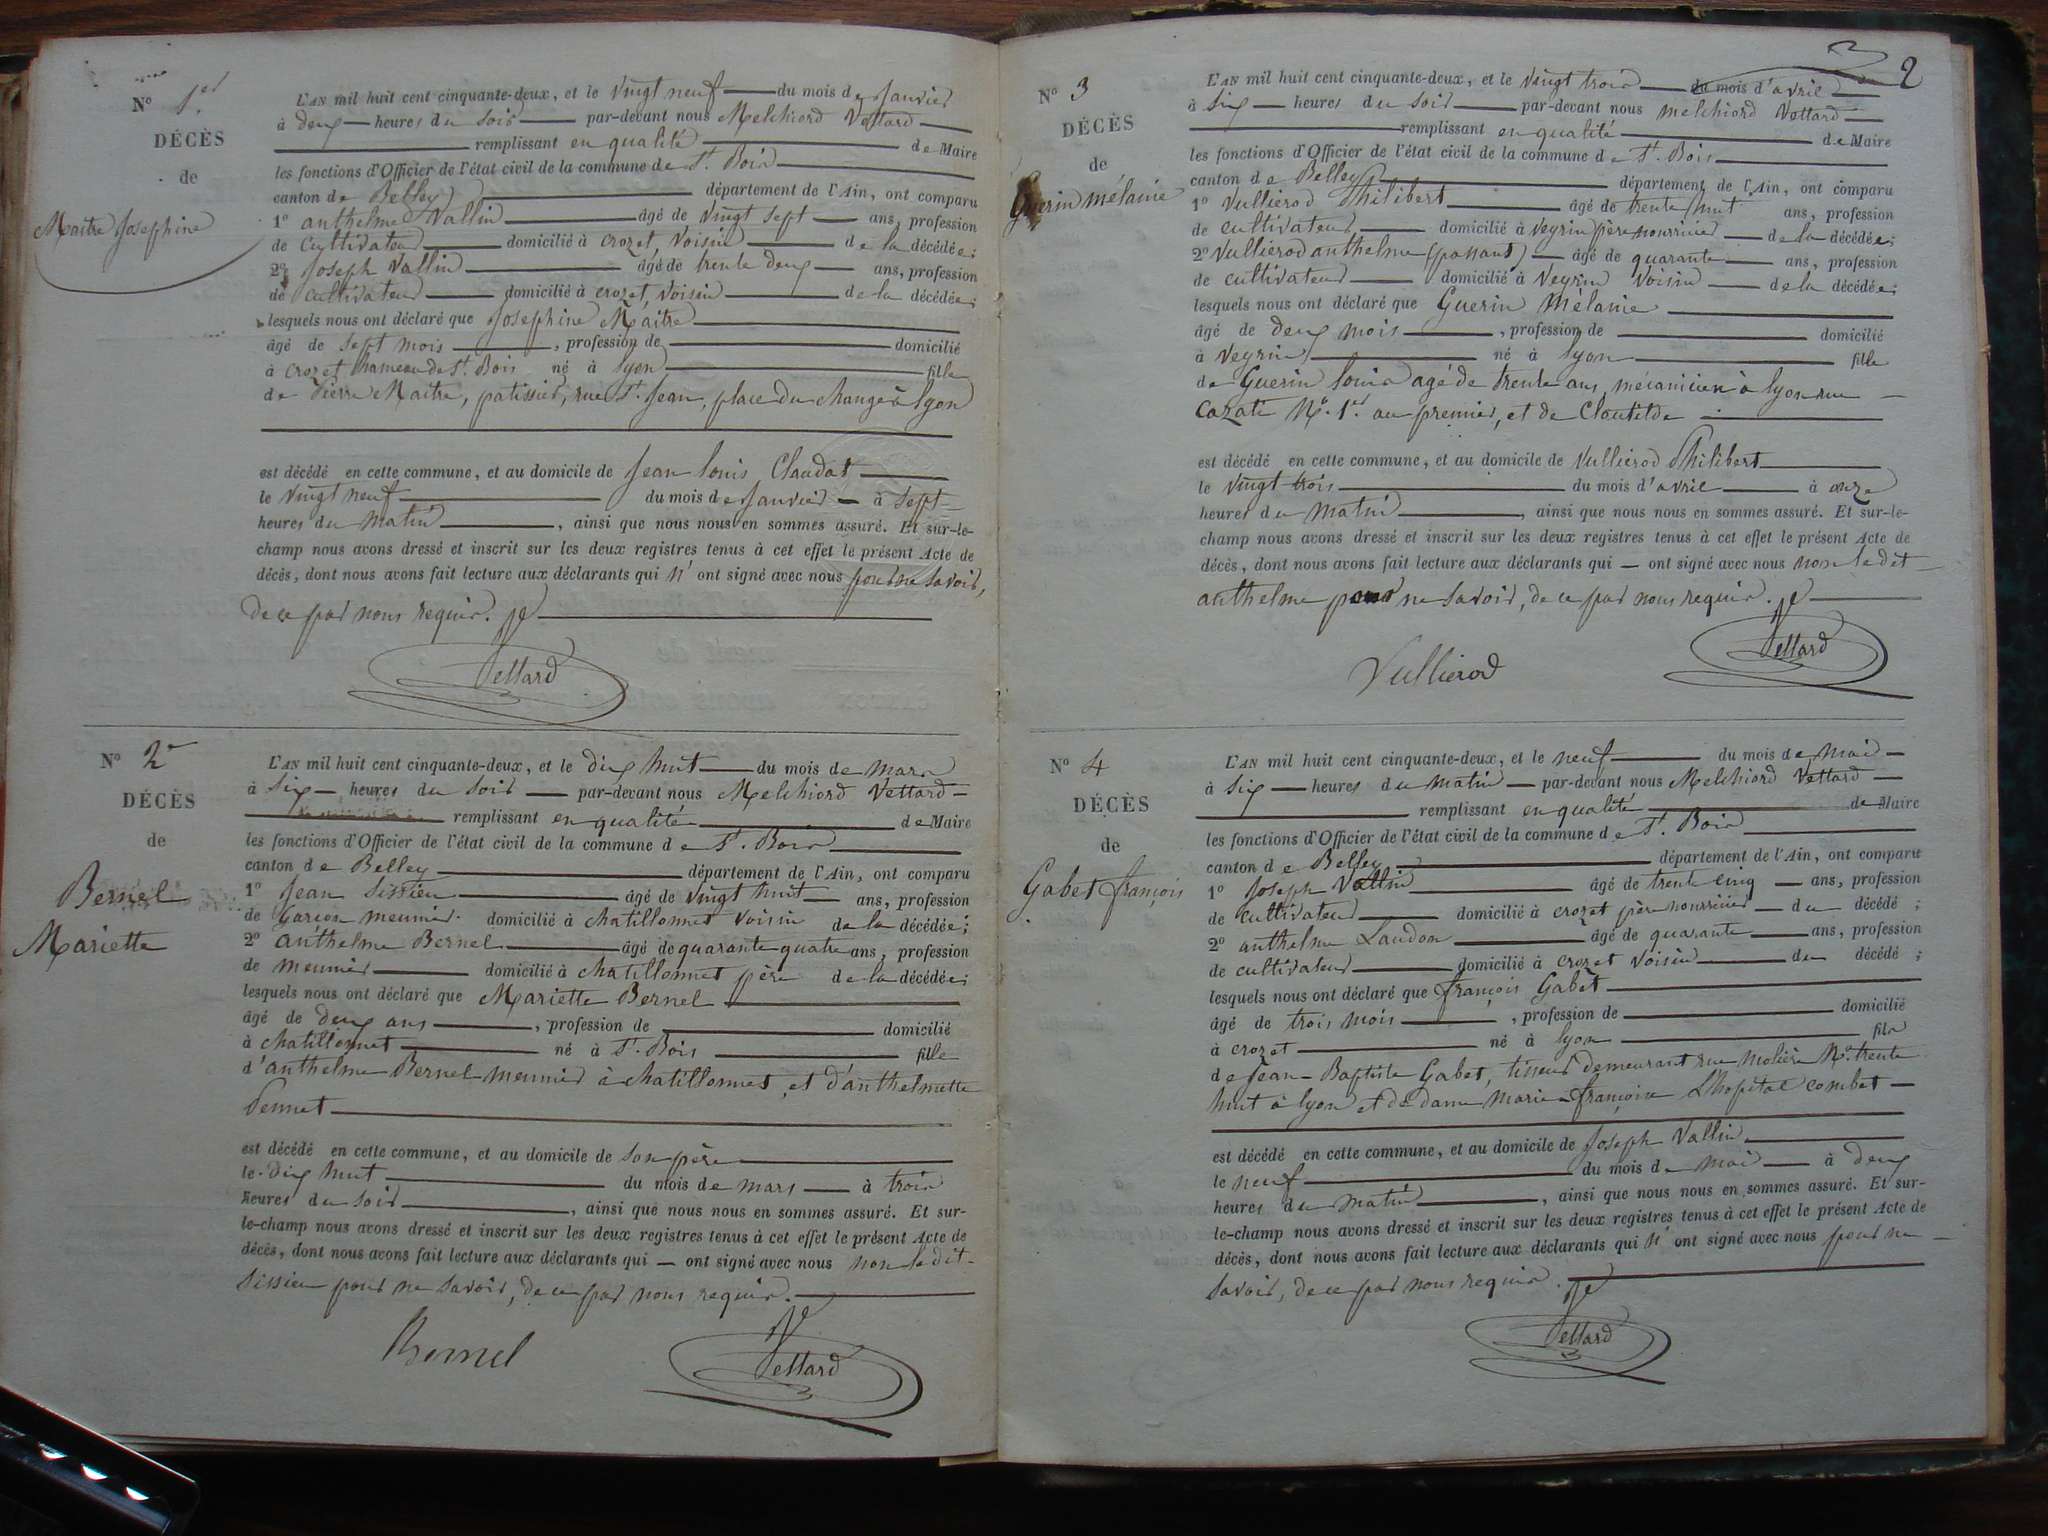 N° 1er
DÉCÈS
de
Maitre Josephine
L'AN mil huit cent cinquante-deux, et le vingt neuf du mois de Janvier
à deux heures du soir par-devant nous Melchiord Vettard
remplissant en qualité de Maire
les fonctions d'Officier de l'état civil de la commune de St. Bois
canton de Belley département de l'Ain, ont comparu
1° anthelme Vallin âgé de vingt sept ans, profession
de Cultivateur domicilié à crozet, voisin de la décédée;
2° Joseph Vallin âgé de trente deux ans, profession
de cultivateur domicilié à crozet, voisin de la décédée;
lesquels nous ont déclaré que Josephine Maitre
âgé de sept mois, profession de domicilié
à crozet hameau de St. Bois né à lyon fille
de Pierre Maitre, patissier, rue St. Jean, place du change à lyon
est décédé en cette commune, et au domicile de Jean Louis Claudat
le vingt neuf du mois de Janvier à sept
heures du matin, ainsi que nous nous en sommes assuré. Et sur-le-
champ nous avons dressé et inscrit sur les deux registres tenus à cet effet le présent Acte de
décès, dont nous avons fait lecture aux déclarants qui n'ont signé avec nous pour ne savoir,
de ce par nous requis.
Vettard
N° 2
DÉCÈS
de
Bernel
Mariette
L'AN mil huit cent cinquante-deux, et le dix huit du mois de mars
à six heures du soir par-devant nous Melchiord Vettard
remplissant en qualité de Maire
les fonctions d'Officier de l'état civil de la commune de St. Bois
canton de Belley département de l'Ain, ont comparu
1° Jean Sissieu âgé de vingt huit ans, profession
de garcon meunier domicilié à chatillonnet voisin de la décédée;
2° anthelme Bernel âgé de quarante quatre ans, profession
de meunier domicilié à chatillonnet père de la décédée;
lesquels nous ont déclaré que Mariette Bernel
âgé de deux ans, profession de domicilié
à chatillonnet né à St. Bois fille
d'anthelme Bernel meunier à chatillonnet, et d'anthelmette
Pennet
est décédé en cette commune, et au domicile de son père
le dix huit du mois de mars à trois
heures du soir, ainsi que nous nous en sommes assuré. Et sur-
le-champ nous avons dressé et inscrit sur les deux registres tenus à cet effet le présent Acte de
décès, dont nous avons fait lecture aux déclarants qui ont signé avec nous non le dit
Sissieu pour ne savoir, de ce par nous requis.
Bernel
Vettard
2
N° 3
DÉCÈS
de
Guerin mélanie
L'AN mil huit cent cinquante-deux, et le vingt trois du mois d'avril
à six heures du soir par-devant nous melchiord Vettard
remplissant en qualité de Maire
les fonctions d'Officier de l'état civil de la commune de St. Bois
canton de Belley département de l'Ain, ont comparu
1° Vullierod Philibert âgé de trente huit ans, profession
de cultivateur domicilié à Veyrin père nourricier de la décédée;
2° Vullierod anthelme (passant) âgé de quarante ans, profession
de cultivateur domicilié à Veyrin voisin de la décédée;
lesquels nous ont déclaré que Guerin Mélanie
âgé de deux mois, profession de domicilié
à Veyrin né à lyon fille
de Guerin louis agé de trente ans, mécanicien à lyon rue
Cazati N°. 1er. au premier, et de Cloutilde
est décédé en cette commune, et au domicile de Vullierod Philibert
le vingt trois du mois d'avril à onze
heures du matin, ainsi que nous nous en sommes assuré. Et sur-le-
champ nous avons dressé et inscrit sur les deux registres tenus à cet effet le présent Acte de
décès, dont nous avons fait lecture aux déclarants qui ont signé avec nous non le dit
anthelme pour ne savoir, de ce par nous requis.
Vullierod
Vettard
N° 4
DÉCÈS
de
Gabet françois
L'AN mil huit cent cinquante-deux, et le neuf du mois de mai
à six heures du matin par-devant nous Melchiord Vettard
remplissant en qualité de Maire
les fonctions d'Officier de l'état civil de la commune de St. Bois
canton de Belley département de l'Ain, ont comparu
1° Joseph Vallin âgé de trente cinq ans, profession
de cultivateur domicilié à crozet père nourricier du décédé;
2° anthelme Landon âgé de quarante ans, profession
de cultivateur domicilié à crozet voisin du décédé;
lesquels nous ont déclaré que françois Gabet
âgé de trois mois, profession de domicilié
à crozet né à lyon fils
de Jean-Baptiste Gabet, tisseur demeurant rue molière N°. trente
huit à lyon et de dame marie françoise L'hopital combet
est décédé en cette commune, et au domicile de Joseph Vallin
le neuf du mois de mai à deux
heures du matin, ainsi que nous nous en sommes assuré. Et sur-
le-champ nous avons dressé et inscrit sur les deux registres tenus à cet effet le présent Acte de
décès, dont nous avons fait lecture aux déclarants qui n'ont signé avec nous pour ne
savoir, de ce par nous requis.
Vettard